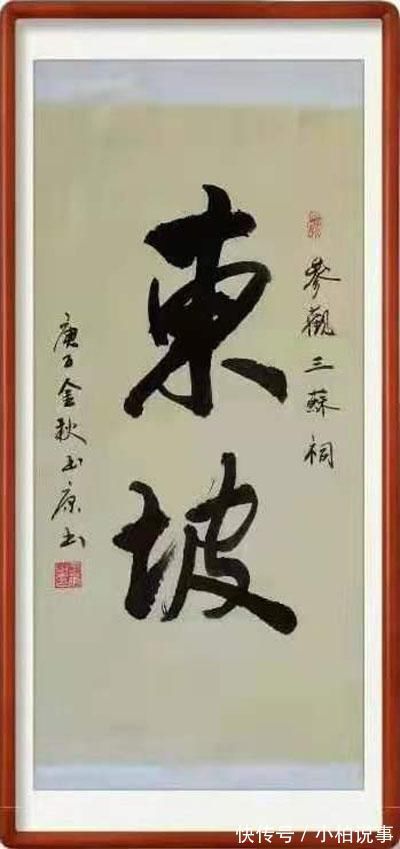 參觀三蘇祠
東坡
庚子金秋玉原书
快传号/小柏说事